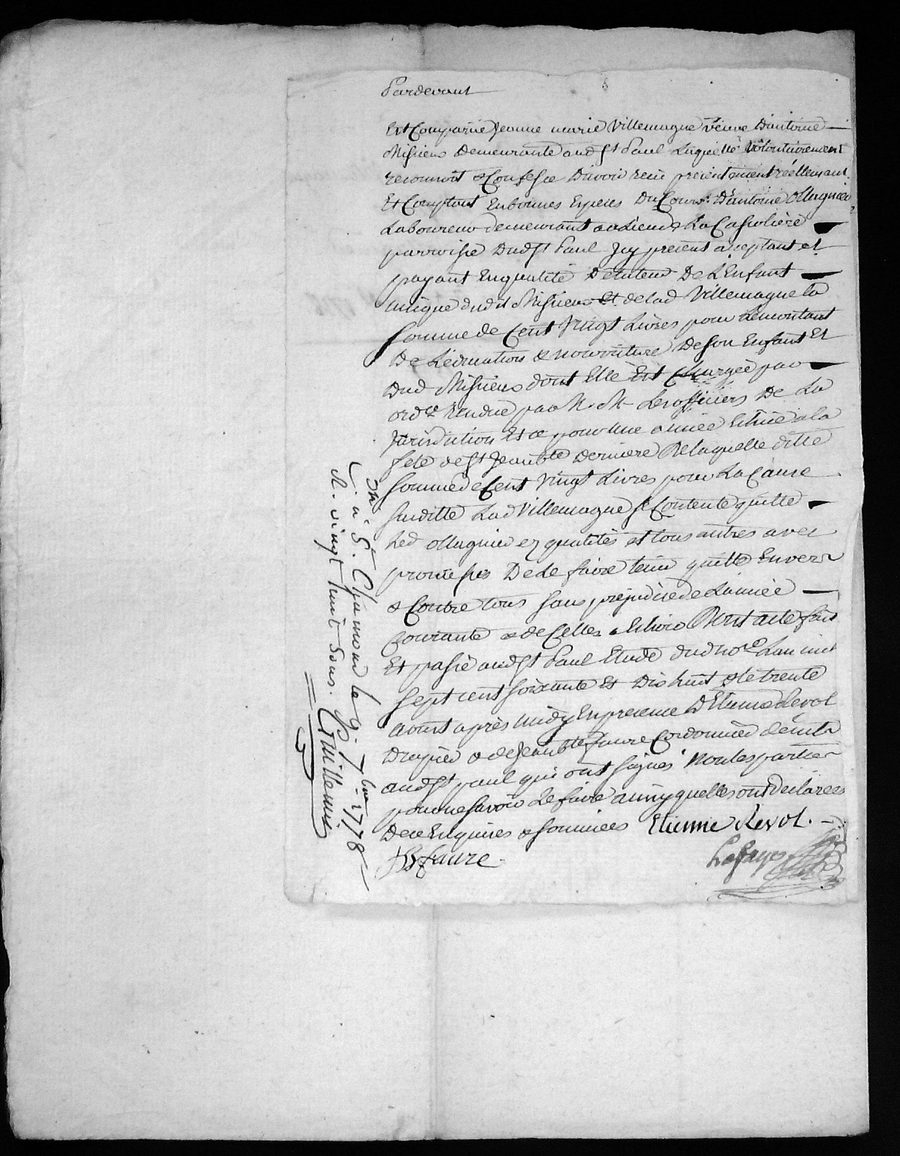 Pardevant
Est Comparüe Jeanne marie Villemagne veuve D'antoine
Missieux Demeurante aud St Paul Laquelle Volontairement
reconnoit & Confesse D'avoir recu presentement réellement
Et Comptant En bonnes Especes Du Cour. D'antoine Ollagnier
Laboureur demeurant au Lieu de La
parroisse Dud St Paul Jcy present acceptant et
payant En qualité De tuteur De L'Enfant
unique dudit Missieux Et de lad Villemagne la
somme de Cent Vingt Livres pour Le montant
De L'education & nourriture De son Enfant Et
Dud Missieux dont Elle Est Chargée par
ordce Rendue par M. M. Les officiers De La
Jurisdiction Et ce pour Une année Echüe a la
fete de St Jean bte Derniere De laquelle ditte
somme de Cent Vingt Livres pour La Cause
susditte Lad Villemagne se Contente quitte
Led Ollagnier ez qualités et tous autres avec
promesses De le faire tenir quitte Envers
& Contre tous sans prejudice de L'année
Courante & de Celles a Echoir Dont acte fait
Et passé aud St Paul Etude dud nore L'an mil
sept cent soixante Et Dix huit & le trente
aoust après midy En presence D'Etienne Revol
Drapier & de Jean bte faure Cordonnier demts
aud St paul qui ont signés Non les parties
pour ne savoir Le faire ainsy qu'elles ont declarées
De ce Enquises & sommées Etienne Revol.
JB faure.
Lafayes
a St Chamond le 9. 7bre 1778
R. vingt huit sous. Guillemin